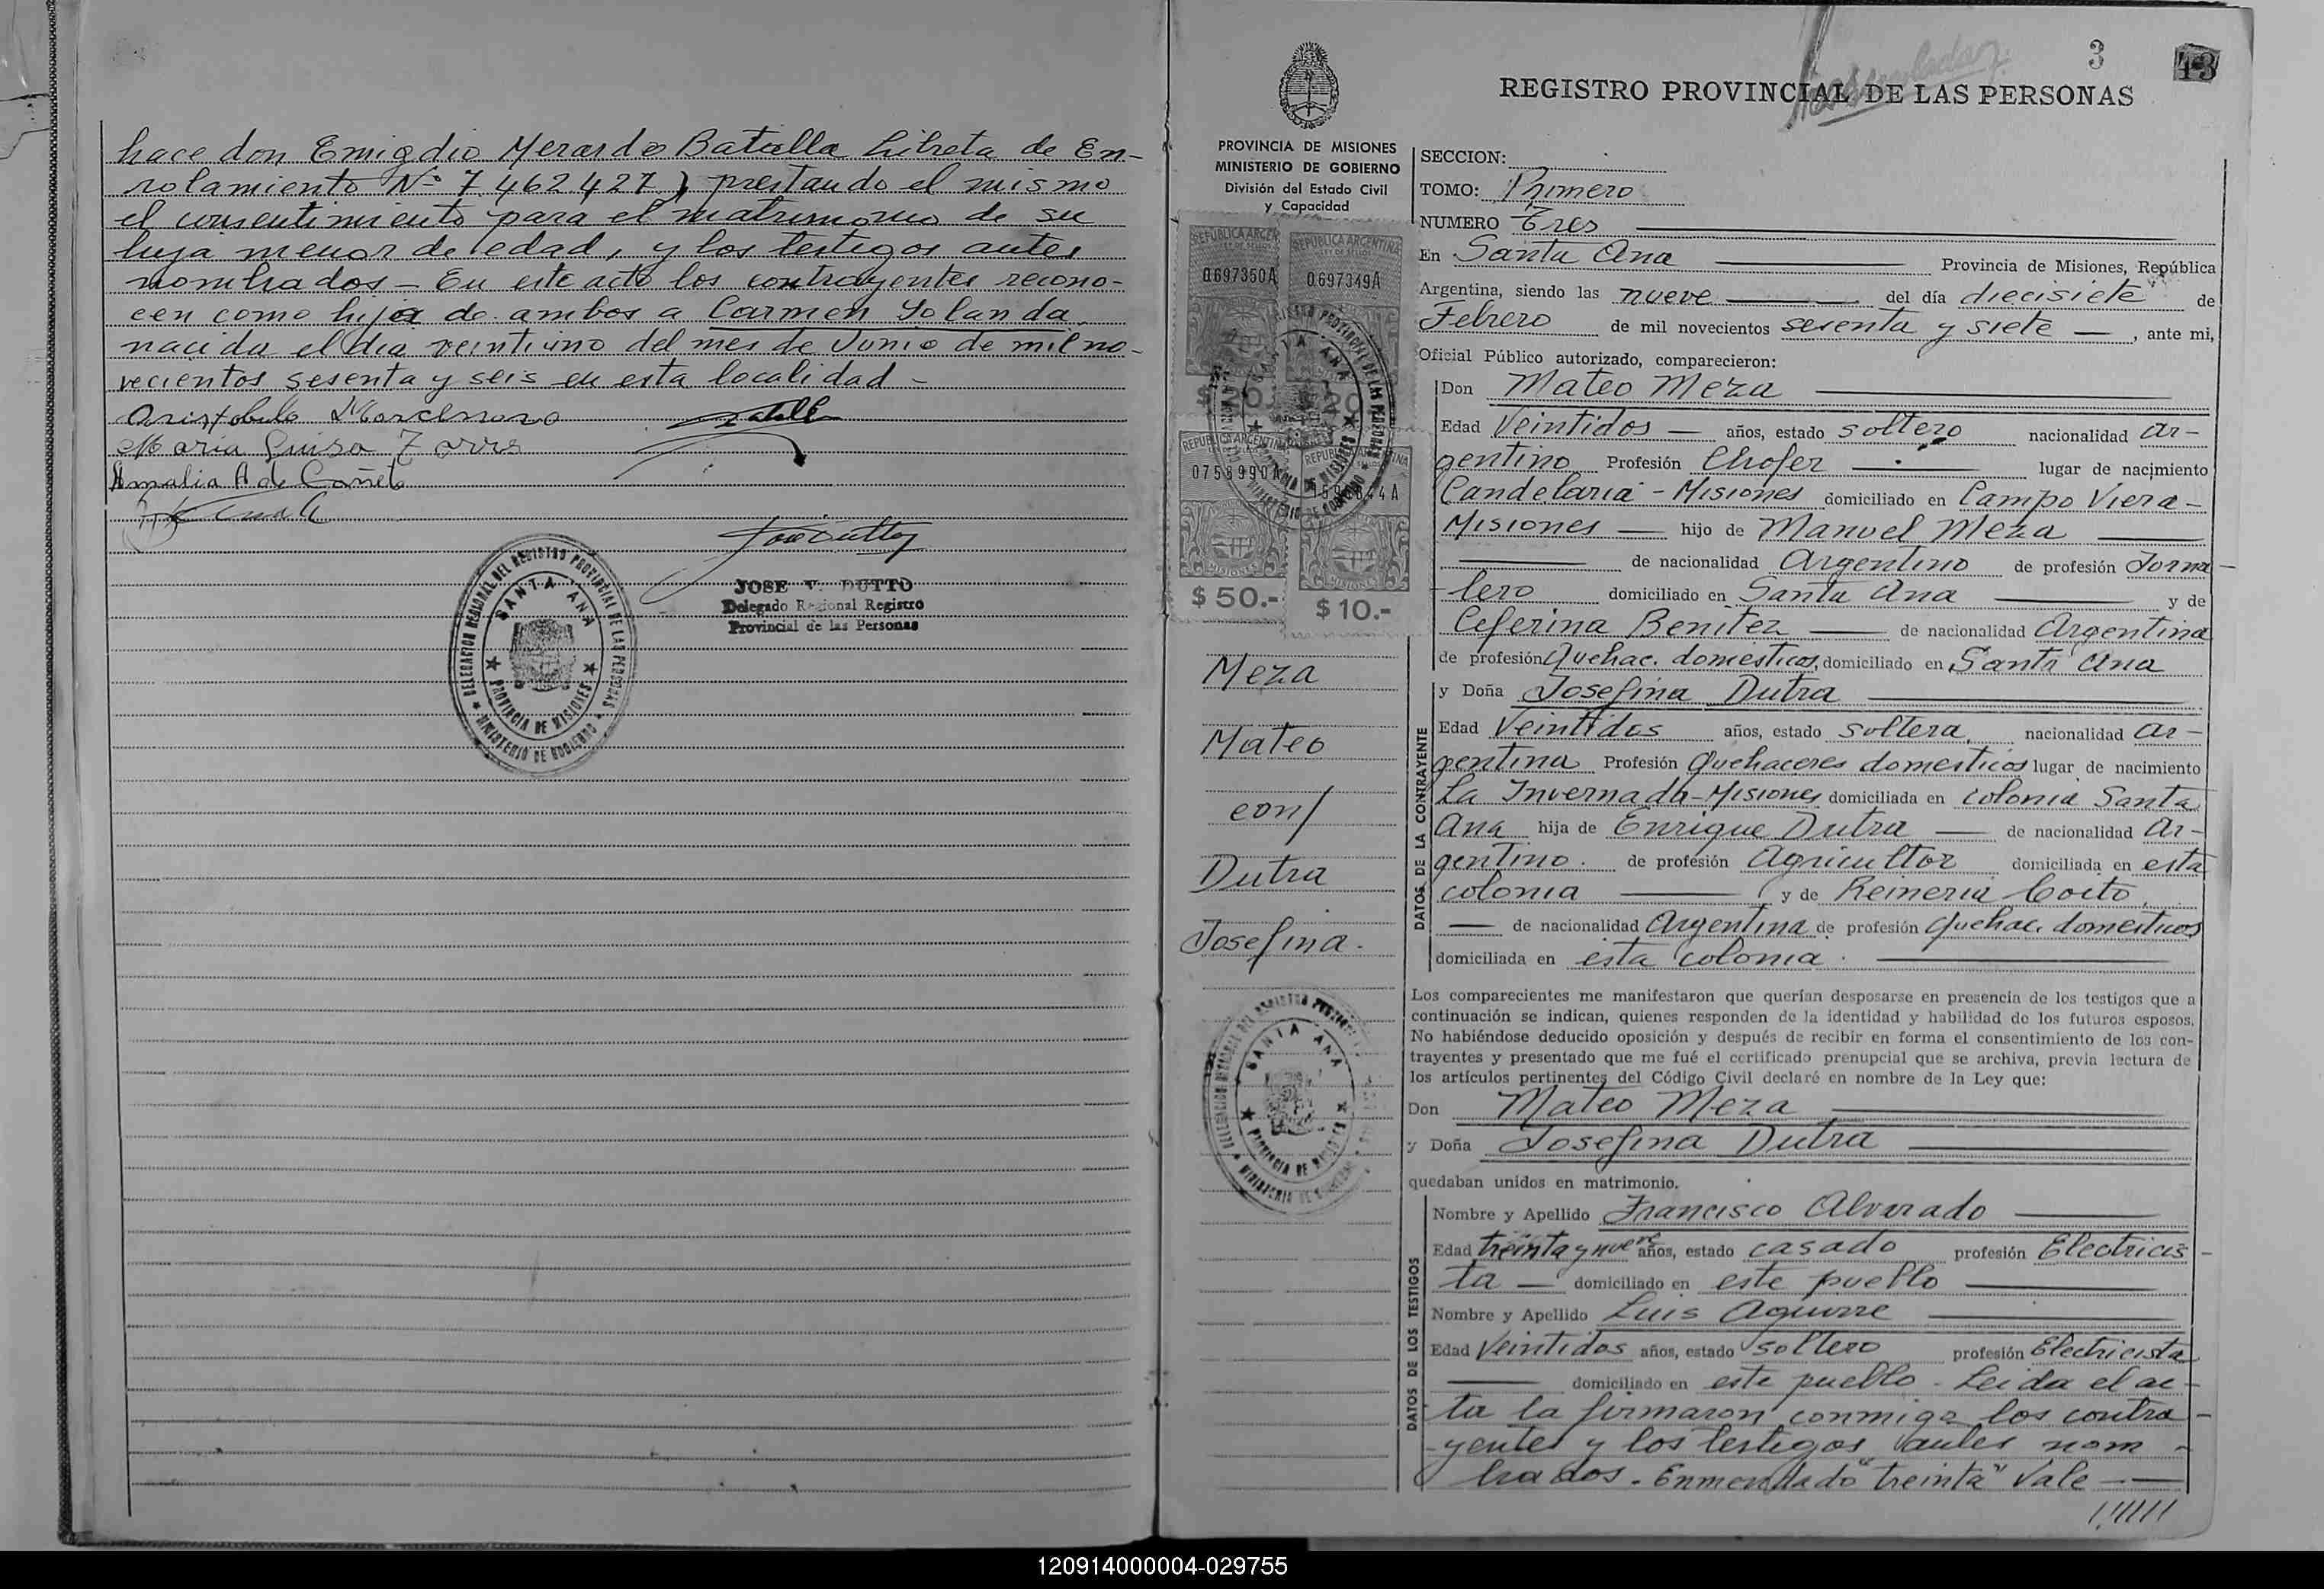 hace don Emigdio Merardo Batalla Libreta de En-
rolamiento Nº 7.462.427) prestando el mismo
el consentimiento para el matrimonio de su
hija menor de edad, y los testigos antes
nombrados – En este acto los contrayentes recono-
cen como hija de ambos a Carmen Yolanda
nacida el dia veintiuno del mes de Junio de mil no-
vecientos sesenta y seis en esta localidad –
Aristobulo
Maria Luisa
Amalia A de Cañete
JOSE V. DUTTO
Delegado Regional Registro
Provincial de las Personas
DELEGACION REGIONAL DEL REGISTRO PROVINCIAL DE LAS PERSONAS
SANTA ANA
PROVINCIA DE MISIONES
MINISTERIO DE GOBIERNO
3
43
REGISTRO PROVINCIAL DE LAS PERSONAS
PROVINCIA DE MISIONES
MINISTERIO DE GOBIERNO
División del Estado Civil
y Capacidad
REPUBLICA ARGENTINA
0697350A
0697349A
$50.-
$10.-
Meza
Mateo
con/
Dutra
Josefina.
SANTA ANA
SECCION:
TOMO: Primero
NUMERO Tres
En Santa Ana Provincia de Misiones, República
Argentina, siendo las nueve del día diecisiete de
Febrero de mil novecientos sesenta y siete —, ante mi,
Oficial Público autorizado, comparecieron:
Don Mateo Meza
Edad Veintidos — años, estado soltero nacionalidad ar-
gentino Profesión Chofer — lugar de nacimiento
Candelaria - Misiones domiciliado en Campo Viera -
Misiones — hijo de Manuel Meza
de nacionalidad Argentino de profesión Jorna-
lero domiciliado en Santa Ana y de
Ceferina Benitez — de nacionalidad Argentina
de profesión Quehac. domesticos, domiciliado en Santa Ana
DATOS DE LA CONTRAYENTE
y Doña Josefina Dutra
Edad Veintidos años, estado soltera, nacionalidad ar-
gentina Profesión Quehaceres domesticos lugar de nacimiento
La Invernada - Misiones domiciliada en colonia Santa
Ana hija de Enrique Dutra — de nacionalidad ar-
gentino. de profesión Agricultor domiciliada en esta
colonia y de Reineria Coito,
— de nacionalidad Argentina de profesión Quehac. domesticos
domiciliada en esta colonia.
Los comparecientes me manifestaron que querían desposarse en presencia de los testigos que a
continuación se indican, quienes responden de la identidad y habilidad de los futuros esposos.
No habiéndose deducido oposición y después de recibir en forma el consentimiento de los con-
trayentes y presentado que me fué el certificado prenupcial que se archiva, previa lectura de
los artículos pertinentes del Código Civil declaré en nombre de la Ley que:
Don Mateo Meza
y Doña Josefina Dutra
quedaban unidos en matrimonio.
DATOS DE LOS TESTIGOS
Nombre y Apellido Francisco Alvarado
Edad treinta y nueve años, estado casado profesión Electricis-
ta — domiciliado en este pueblo
Nombre y Apellido Luis Aguirre
Edad Veintidos años, estado soltero profesión Electricista
domiciliado en este pueblo - Leida el ac-
ta la firmaron conmigo los contra-
yentes y los testigos antes nom-
brados - Enmendado "treinta" Vale —
120914000004-029755